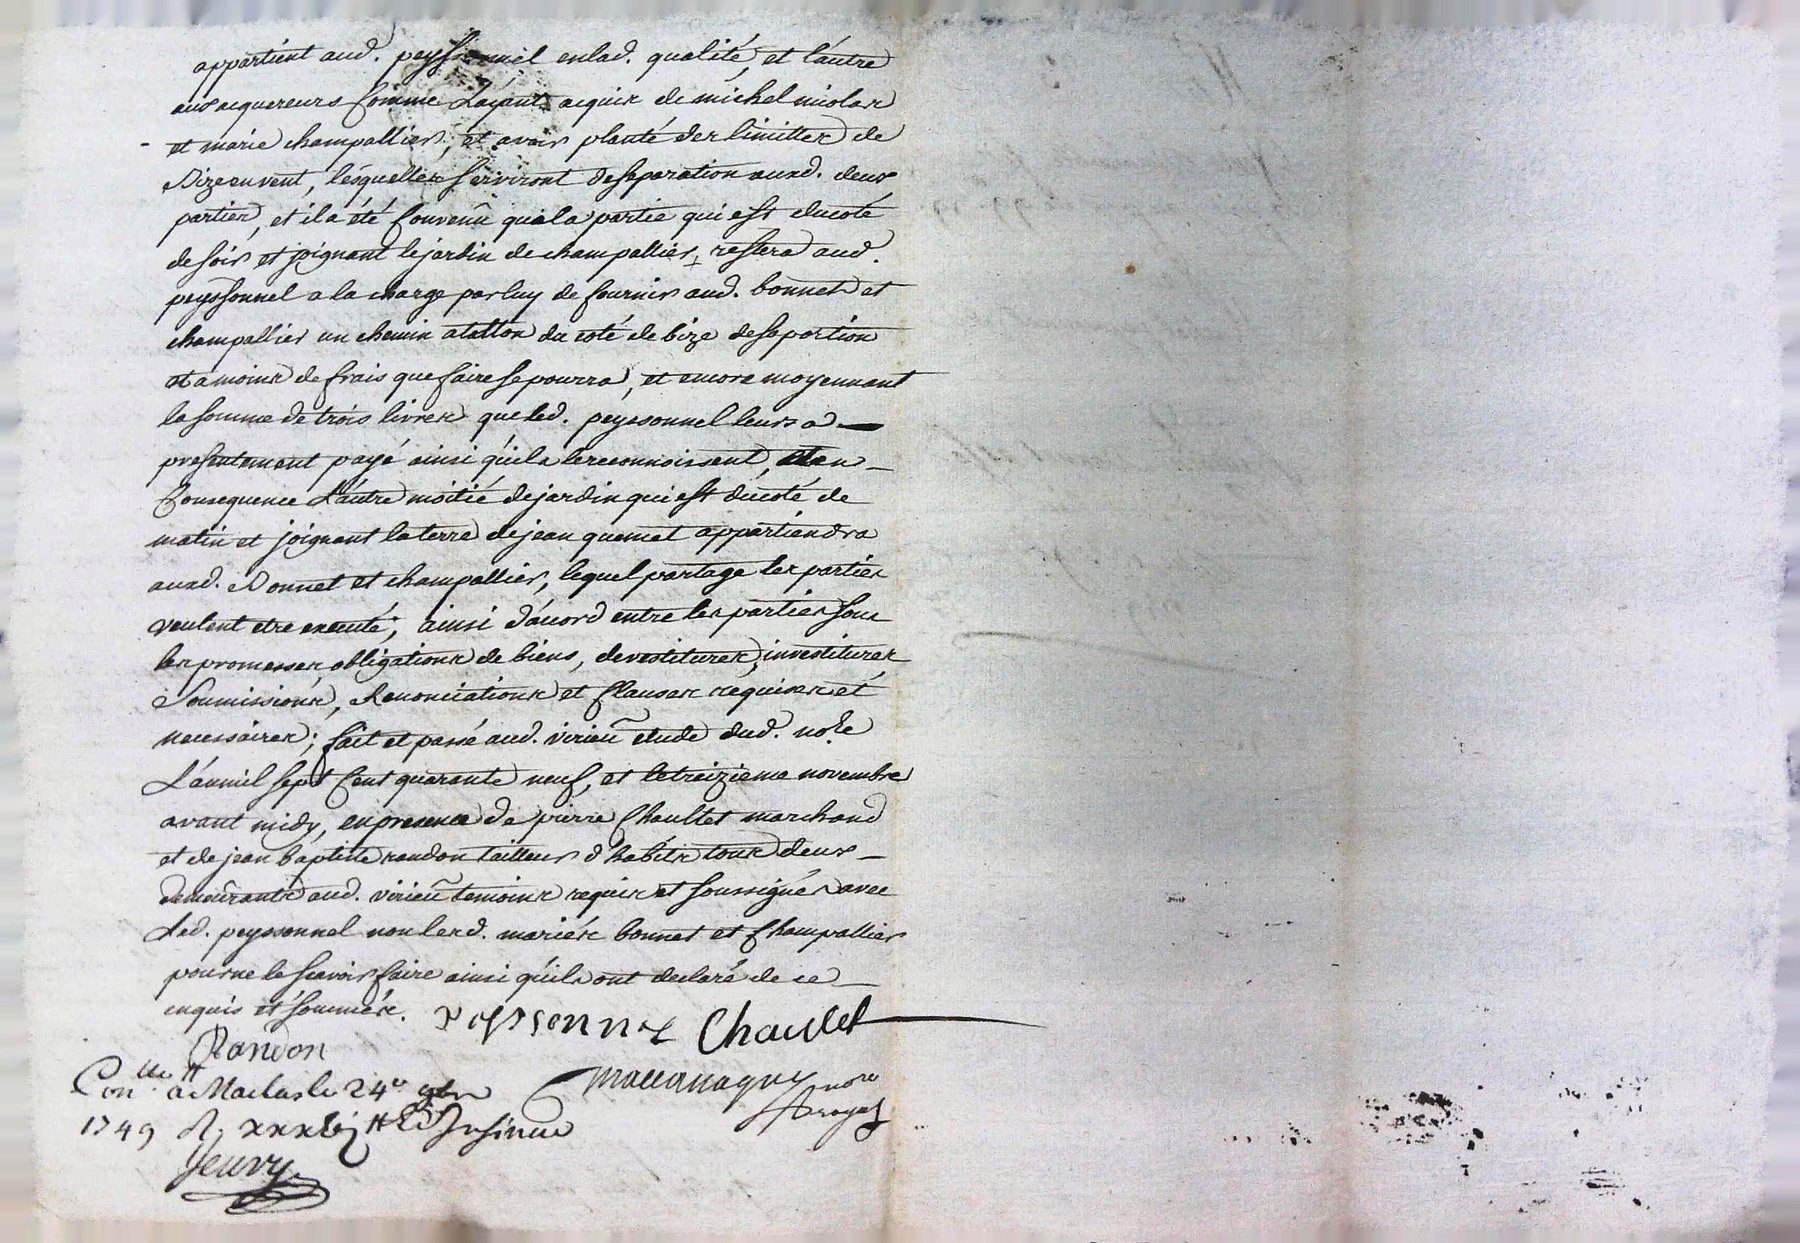 appartient aud. peyssonnel enlad. qualité, et l'autre
aux acquereurs comme L'ayant acquis de michel nicolas
et marie champallier, et avoir planté des limittes de
Bize en vent, lesquelles serviront de separation auxd. deux
parties, et il a été convenû que la partie qui est du coté
de soir et joignant le jardin de champallier, restera aud.
peyssonnel a la charge par luy de fournir aud. bonnet et
champallier un chemin a tallon du coté de bize de sa portion
et a moins de frais que faire se pourra, et encore moyennant
la somme de trois livres que led. peyssonnel leurs a
presentement payé ainsi qu'ils le reconnoissent, et en
Consequence L'autre moitié de jardin qui est du coté de
matin et joignant la terre de jean quemet appartiendra
auxd. Bonnet et champallier, lequel partage les parties
veulent etre executé; ainsi d'acord entre les parties sous
les promesses obligations de biens, devestitures, investitures
Soumissions, Renonciations et Clauses requises et
necessaires; fait et passé aud. virieû etude dud. no.re
L'an mil sept cent quarante neuf, et le treizieme novembre
avant midy, en presence de pierre Chaullet marchand
et de jean baptiste randon tailleur d'habits tous deux
demeûrants aud. virieû temoins requis et soussignés avec
Led. peyssonnel non lesd. mariés bonnet et Champallier
pour ne le scavoir faire ainsi qu'ils ont declaré de ce
enquis et sommés. peyssonnel Chaullet
Randon
Con.lle à Maclas le 24e 9bre
1749 R.
Jeury
nore
royal